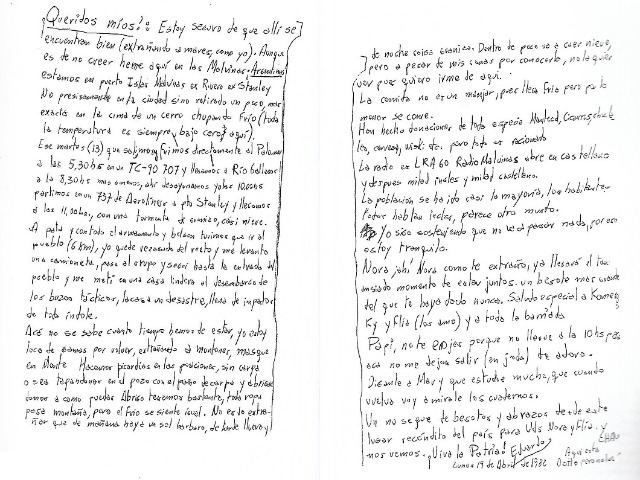 ¡Queridos míos!: Estoy seguro de que allí se
encuentran bien (extrañando a mares, como yo). Aunque
es de no creer heme aquí en las Malvinas Argentinas
estamos en puerto Islas Malvinas ex Rivero ex Stanley
No precisamente en la ciudad sino retirado un poco, más
exacto en la cima de un cerro chupando frío (toda
la temperatura es siempre bajo cero aquí).
Ese martes (13) que salimos fuimos directamente al Palomar
a las 5,30hs en un TC-90 707 y llegamos a Río Gallegos
a las 8,30hs mas o menos, ahí desayunamos ya las 10:00hs
partimos en un 737 de Aerolíneas a pto Stanley y llegamos
a las 11,20hs, con una tormenta de granizo, casi nieve.
A pata y con todo el armamento y bolson tuvimos que ir al
pueblo (6 km), yo quede rezagado del resto y me levantó
una camioneta, pasé al grupo y seguí hasta la entrada del
pueblo y me metí en una casa lindera al desembarco de
los buzos tácticos, la casa un desastre, llena de impactos
de toda índole.
Acá no se sabe cuanto tiempo hemos de estar, yo estoy
loco de ganas por volver, extrañando a montones, mas que
en Monte
o sea tapandonos en el pozo con el paño de carpa y abrigán
donos como a puede Abrigo tenemos bastante, toda ropa
para montaña, pero el frío se siente igual. No es de extra-
ñar que de mañana haya un sol bárbaro, de tarde llueva y
de noche caiga granizo. Dentro de poco va a caer nieve,
pero a pesar de mis ganas por conocerla, no la quiero
ver pues quiero irme de aquí.
La comida no es un manjar, pues llega fría pero por lo
menor se come.
Han hecho donaciones de toda especie Mantecol, chocola
tes, cerveza, whisky etc. pero todo es racionado
La radio es LRA 60 Radio Malvinas abre en castellano
y despues mitad ingles y mitad castellano.
La población se ha ido casi la mayoría, los habitantes
todos hablan ingles, parece otro mundo.
Yo sigo sosteniendo que no va a pasar nada, por eso
estoy tranquilo.
Nora ¡oh! Nora como te extraño, ya llegará el tan
ansiado momento de estar juntos. un besote mas grande
del que te haya dado nunca. Saludo especial a
Ky y Flia (los amo) y a toda la barriada
Papi, no te enojes porque no llegue a la 10 hs pues
acá no me dejan salir (en joda) te adoro.
Dícenle a Mary que estudie mucho, que cuando
vuelva voy a mirarle los cuadernos.
Un no se que de besotes y abrazos desde este
lugar recóndito del país para Uds Nora y Flia. y
nos vemos. ¡Viva la Patria! Eduardo
Lunes 19 de Abril de 1982
Chau
Aquí está